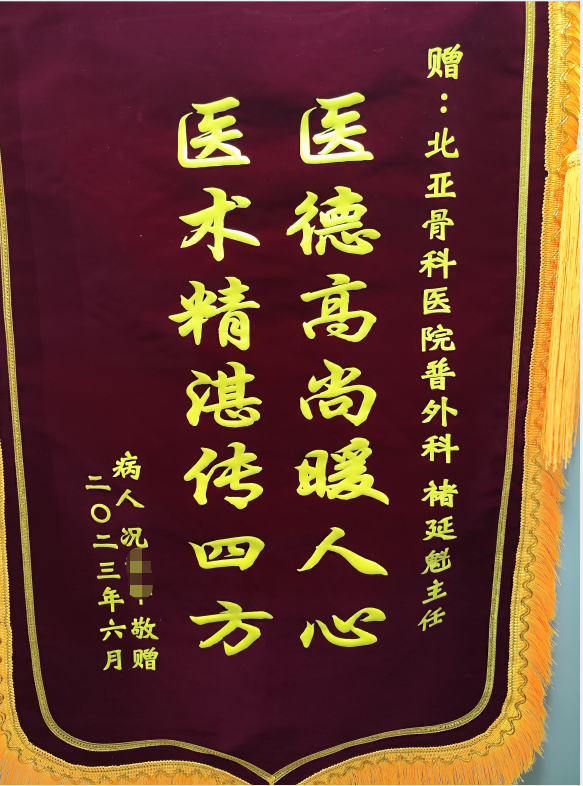 赠：北亚骨科医院普外科 褚延魁主任
医德高尚暖人心
医术精湛传四方
病人 况 敬赠
二〇二三年六月